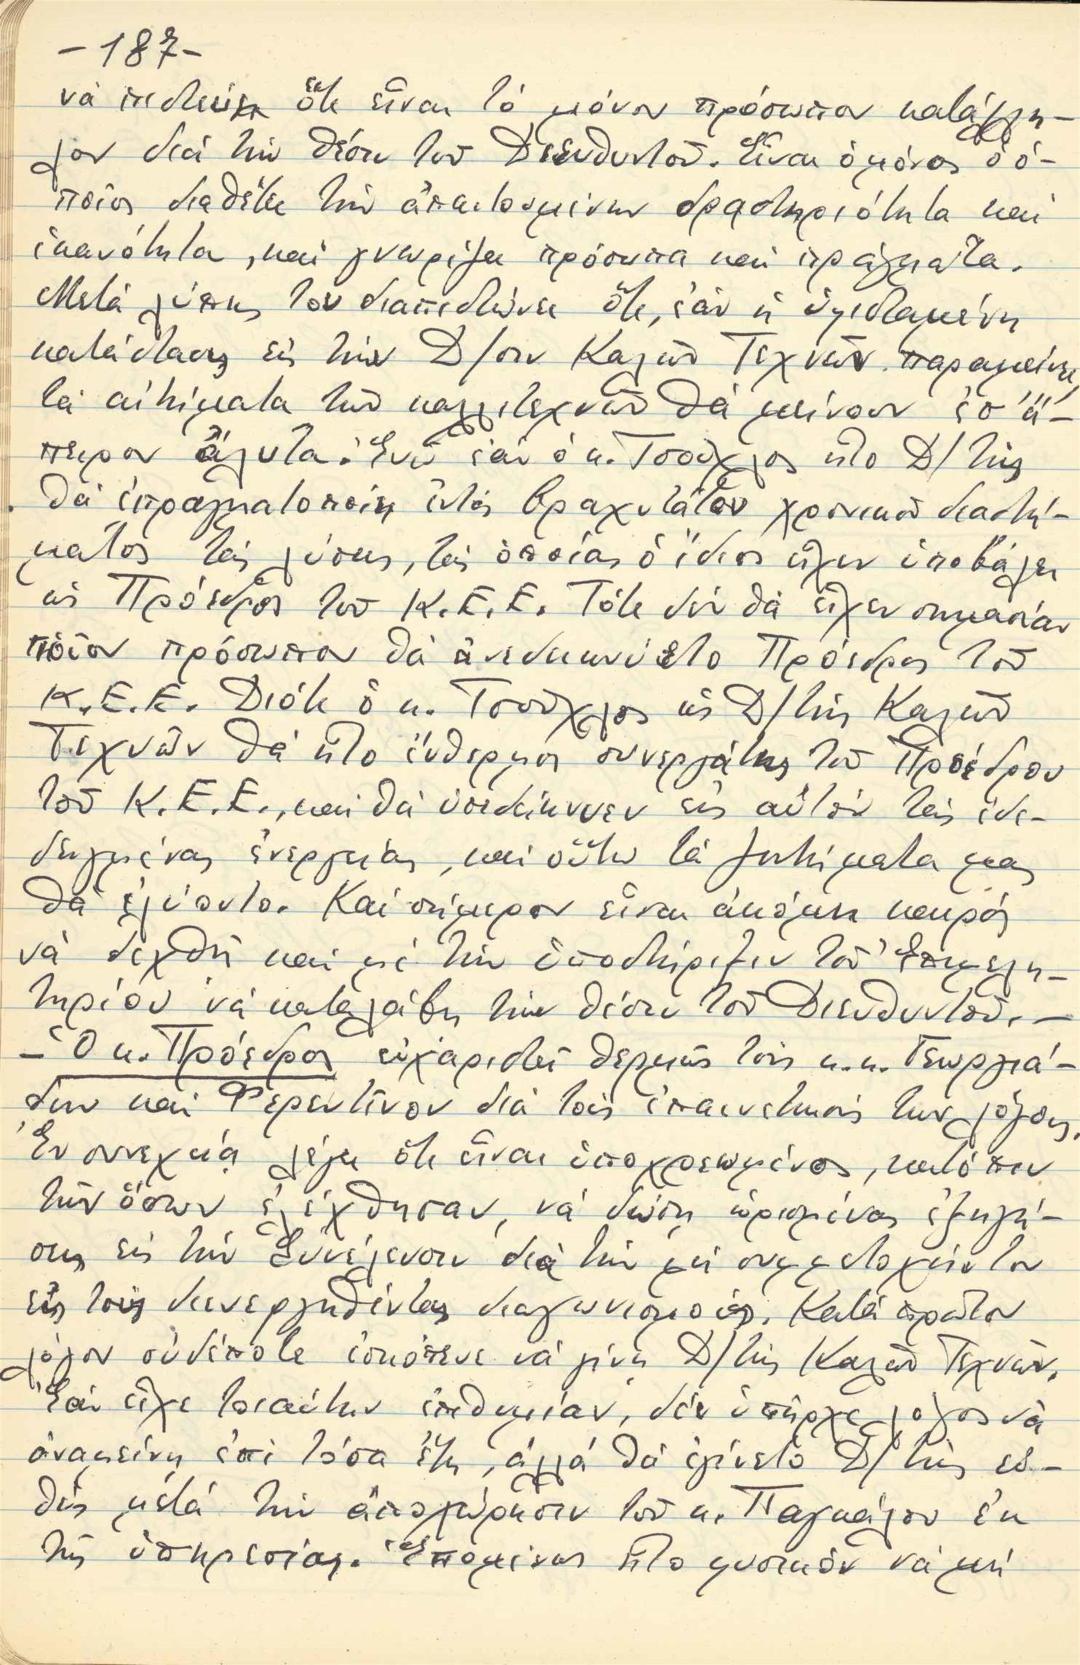 -187-
νά πιστεύῃ ὅτι εἶναι τό μόνον πρόσωπον κατάλλη-
λον διά τήν θέσιν τοῦ Διευθυντοῦ. Εἶναι ὁ μόνος ὁ ὁ-
ποῖος διαθέτει τήν ἀπαιτουμένην δραστηριότητα καί
ἱκανότητα, καί γνωρίζει πρόσωπα καί πράγματα.
Μετά λύπης του διαπιστώνει ὅτι, ἐάν ἡ ὑφισταμένη
κατάστασις εἰς τήν Δ/σιν Καλῶν Τεχνῶν παραμείνει,
τά αἰτήματα τῶν καλλιτεχνῶν θά μείνουν ἐπ' ἄ-
πειρον ἄλυτα. Ἐνῶ ἐάν ὁ κ. Τσοῦχλος ἦτο Δ/τής
θά ἐπραγματοποίει ἐντός βραχυτάτου χρονικοῦ διαστή-
ματος τάς λύσεις, τάς ὁποίας ὁ ἴδιος εἶχεν ὑποβάλει
ὡς Πρόεδρος τοῦ Κ.Ε.Ε. Τότε δέν θά εἶχεν σημασίαν
ποῖον πρόσωπον θά ἀνεδεικνύετο Πρόεδρος τοῦ
Κ.Ε.Ε. Διότι ὁ κ. Τσοῦχλος ὡς Δ/τής Καλῶν
Τεχνῶν θά ἦτο ἔνθερμος συνεργάτης τοῦ Προέδρου
τοῦ Κ.Ε.Ε., καί θά ὑπεδείκνυεν εἰς αὐτόν τάς ἐνδε-
δειγμένας ἐνεργείας, καί οὕτω τά ζητήματα μας
θά ἐλύοντο. Καί σήμερον εἶναι ἀκόμη καιρός
νά δεχθῇ καί μέ τήν ὑποστήριξιν τοῦ Ἐπιμελη-
τηρίου νά καταλάβῃ τήν θέσιν τοῦ Διευθυντοῦ. -
- Ὁ κ. Πρόεδρος εὐχαριστεῖ θερμῶς τούς κ.κ. Γεωργιά-
δην καί Φερεντῖνον διά τούς ἐπαινετικούς των λόγους.
Ἐν συνεχείᾳ λέγει ὅτι εἶναι ὑποχρεωμένος, κατόπιν
τῶν ὅσων ἐλέχθησαν, νά δώσῃ ὡρισμένας ἐξηγή-
σεις εἰς τήν Συνέλευσιν διά τήν μή συμμετοχήν του
εἰς τούς διενεργηθέντας διαγωνισμούς. Κατά πρῶτον
λόγον οὐδέποτε ἐσκόπευε νά γίνῃ Δ/τής Καλῶν Τεχνῶν.
Ἐάν εἶχε τοιαύτην ἐπιθυμίαν, δέν ὑπῆρχε λόγος νά
ἀναμείνῃ ἐπί τόσα ἔτη, ἀλλά θά ἐγίνετο Δ/τής εὐ-
θύς μετά τήν ἀποχώρησιν τοῦ κ. Παγκάλου ἐκ
τῆς ὑπηρεσίας. Ἑπομένως ἦτο φυσικόν νά μή